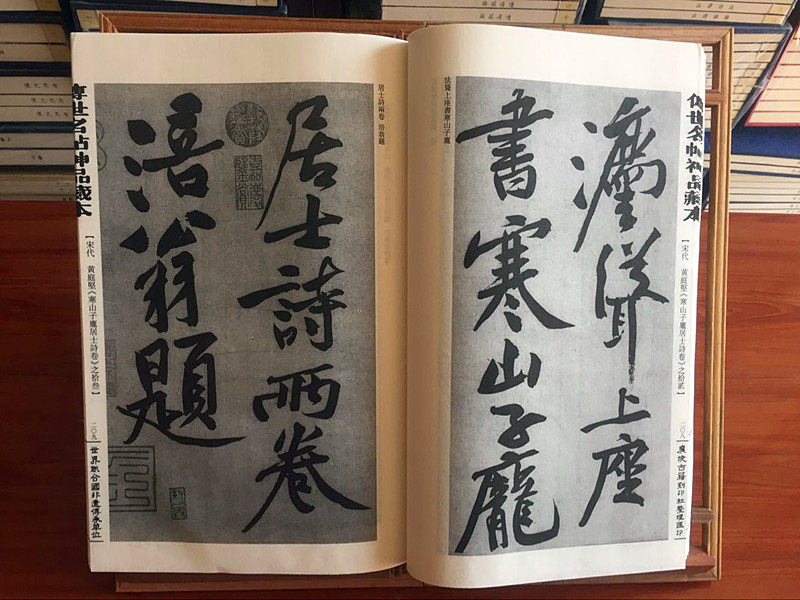 傳世名帖神品藏本
【宋代 黃庭堅《寒山子龐居士詩卷》之拾貳】
二〇八
廣陵古籍刻印社整理匯印
灋聳上座
書寒山子龐
法聳上座書寒山子龐
居士詩兩卷 涪翁題
居士詩兩卷
涪翁題
傳世名帖神品藏本
【宋代 黃庭堅《寒山子龐居士詩卷》之拾叁】
二〇九
世界聯合國非遺傳承單位